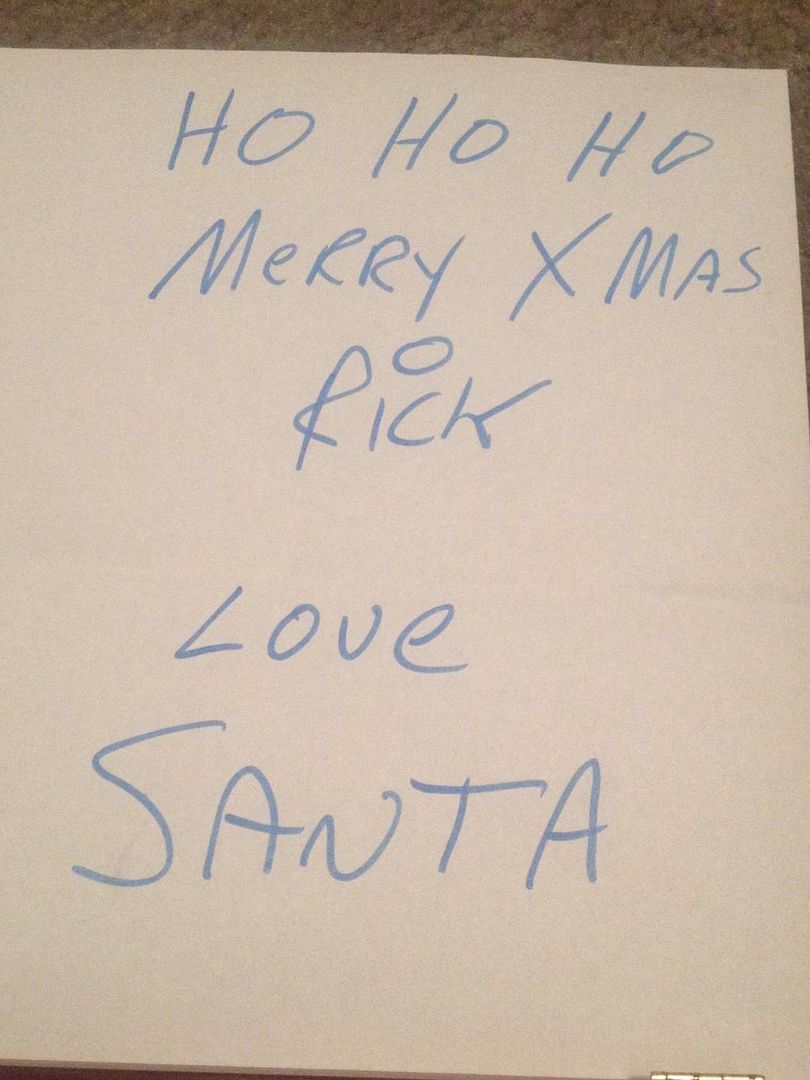 HO HO HO
MeRRY XMAS
RiCK
Love
SANTA